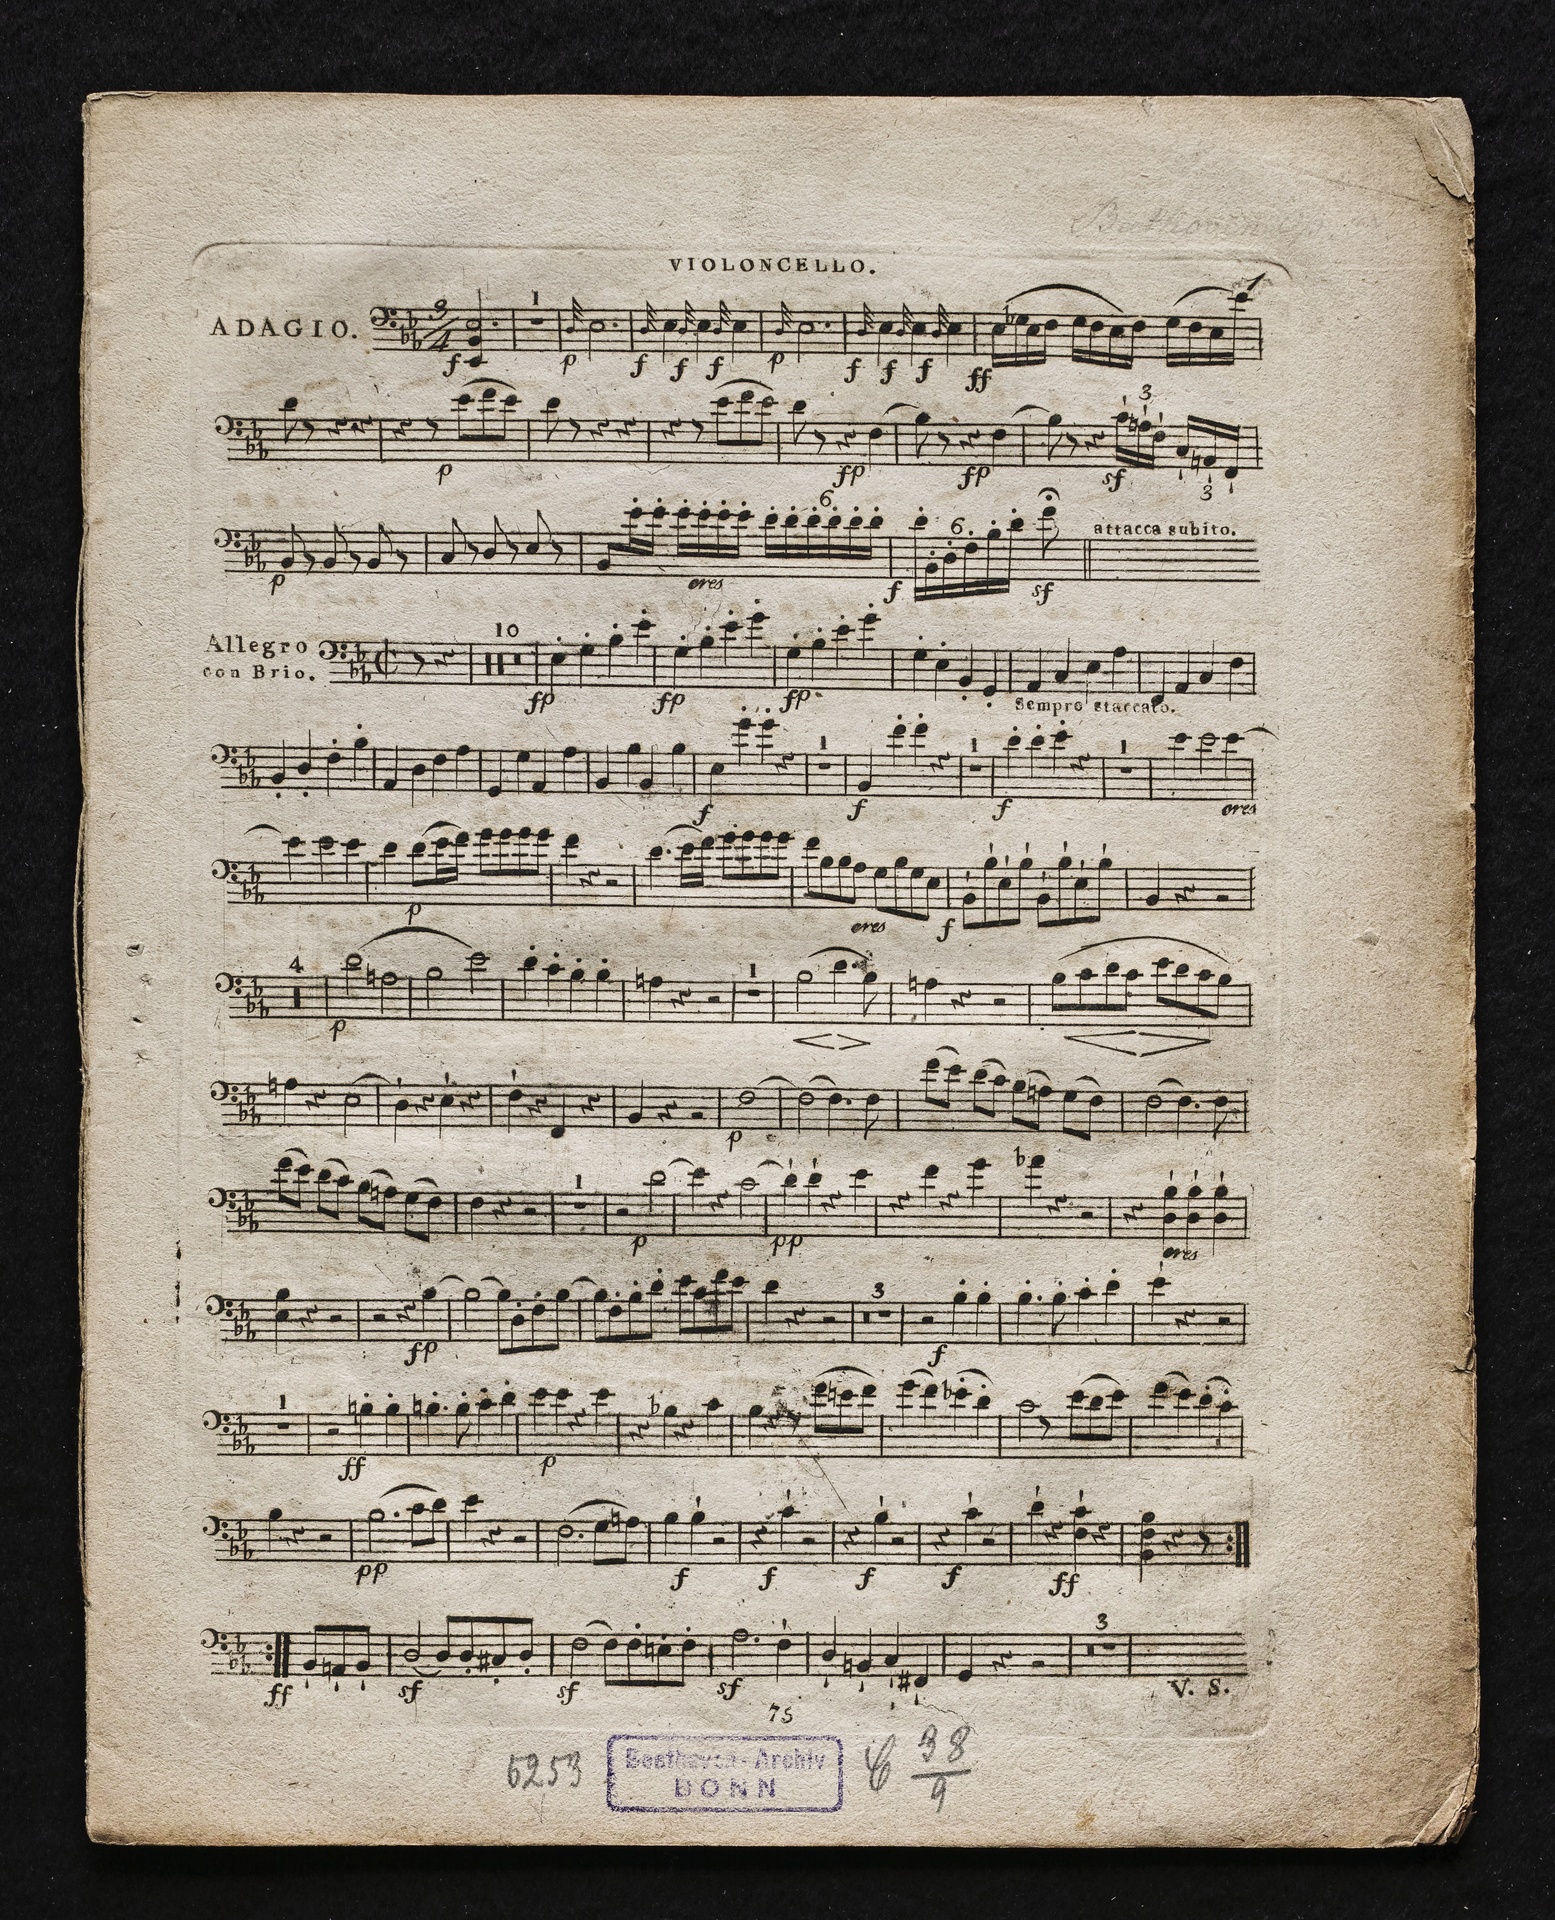 Beethoven
VIOLONCELLO.
1
ADAGIO.
3/4
1
f p f f f p f f f ff
3
p fp fp sf
3
6 6.
attacca subito.
p cres f sf
Allegro
con Brio.
10
fp fp fp
Sempre staccato.
1 1 1
f f f cres
p cres f
4 1
p
p
1
p pp cres
3
fp f
1
ff p
pp f f f f ff
3
ff sf sf sf
V. S.
75
5253
Beethoven-Archiv
BONN
C 38/9